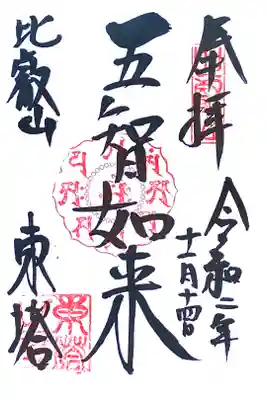 奉拝
令和二年
十一月十四日
五智如来
比叡山
東塔
東塔